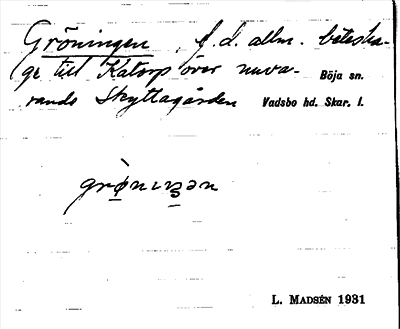 Gröningen, f. d. allm. betesha-
ge till Katorp över nuva-
Böja sn.
rands Skyttagården Vadsbo hd. Skar. l.
grø̀nıŋen
L. MADSÉN 1931